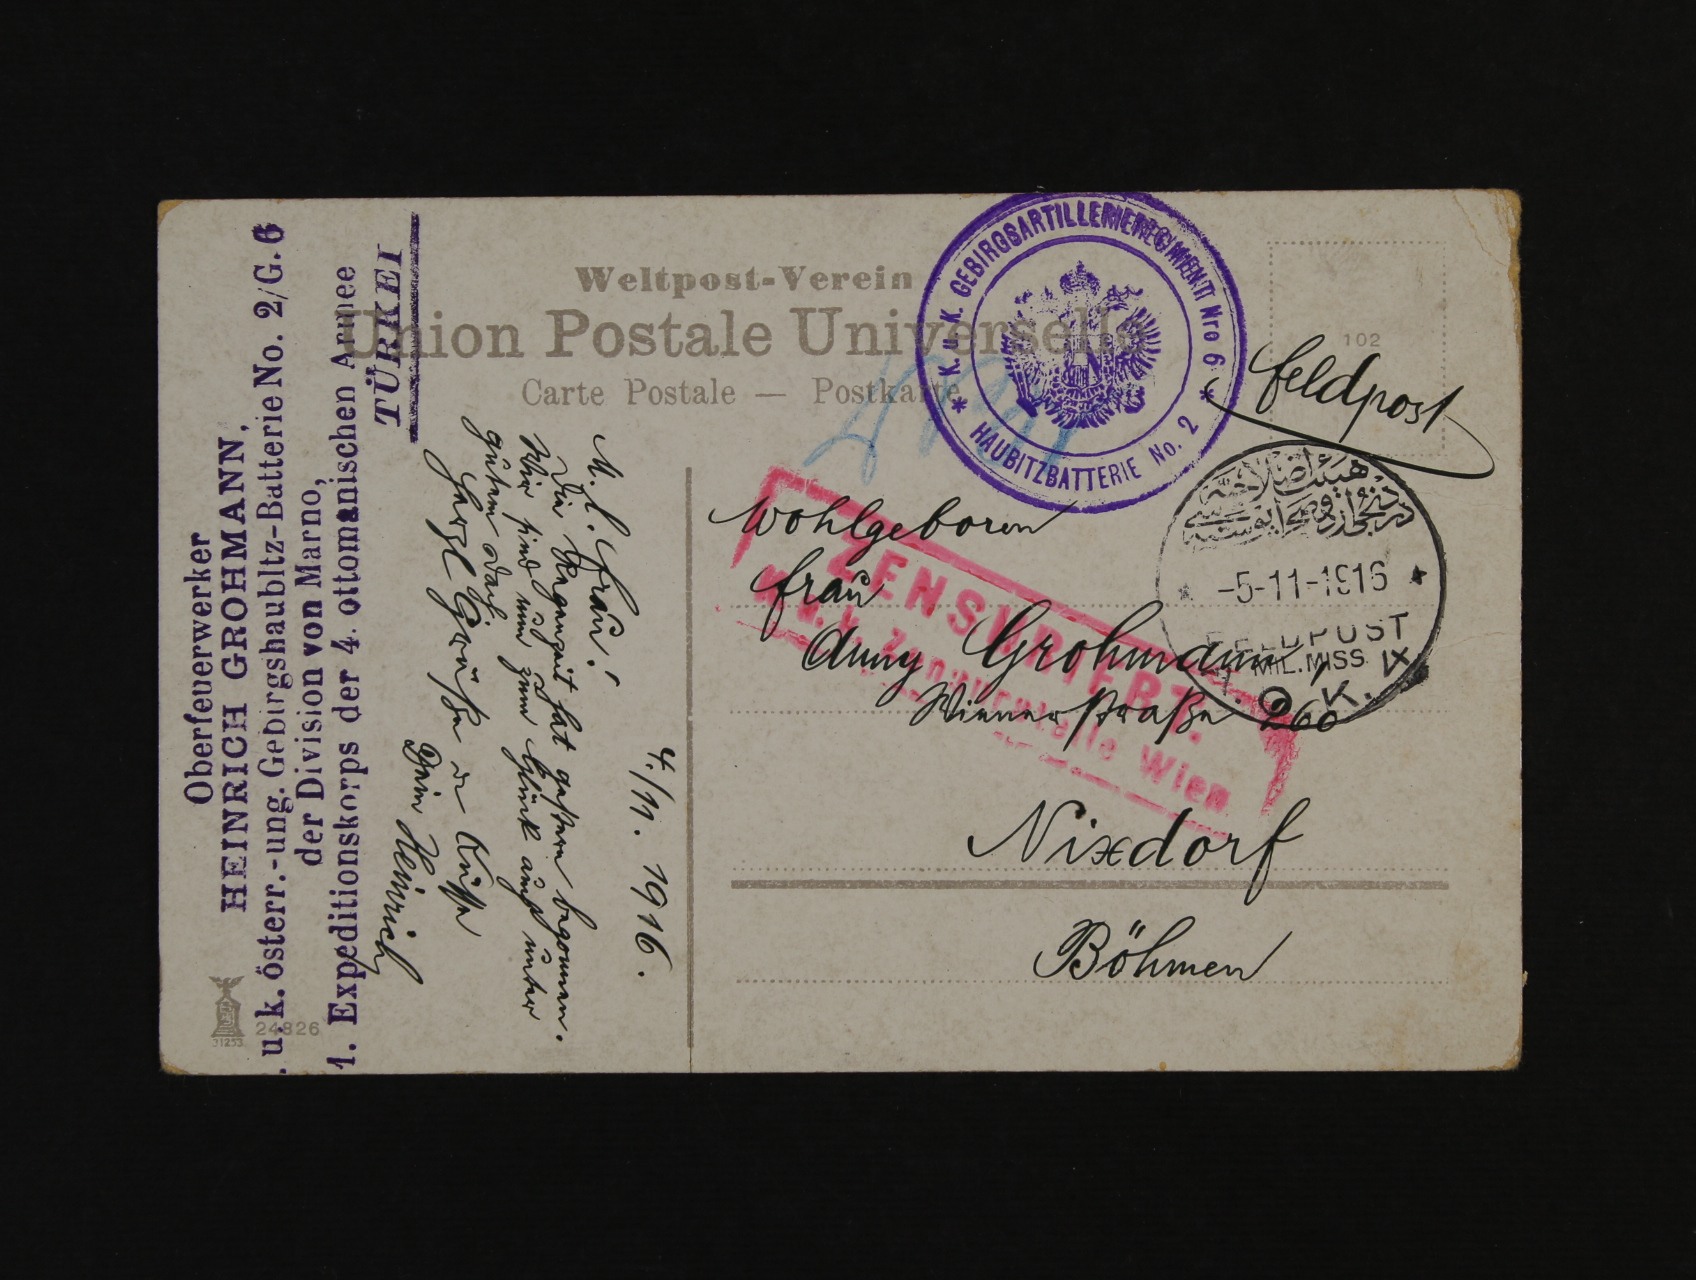 Oberfeuerwerker
HEINRICH GROHMANN,
. u. k. österr.-ung. Gebirgshaubitz-Batterie No. 2/G. 6
der Division von Marno,
1. Expeditionskorps der 4. ottomanischen Armee
TÜRKEI
Weltpost-Verein
Union Postale Universelle
Carte Postale — Postkarte
K. u. K. GEBIRGSARTILLERIEREGIMENT Nro 6
* HAUBITZBATTERIE No. 2 *
102
Feldpost
4./11. 1916.
M. l. Frau!
Die Regenzeit hat gestern begonnen.
Wir sind nun zum Glück auch unter
gutem Dach.
Herzl Grüße u Küsse
Dein Heinrich
ZENSURIERT.
K. u. k. Zensurstelle Wien
-5-11-1916
FELDPOST
MIL. MISS.
A. O. K. IX
Wohlgeboren
Frau
Anny Grohmann
Wienerstraße 260
Nixdorf
Böhmen
24826
31253